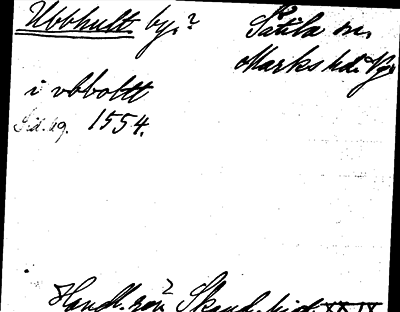 Ubbhult by.? Sätila sn.
Marks hd. Vg.
i vbboltt
1554.
Handl. rör. Skand. hist. XXIX